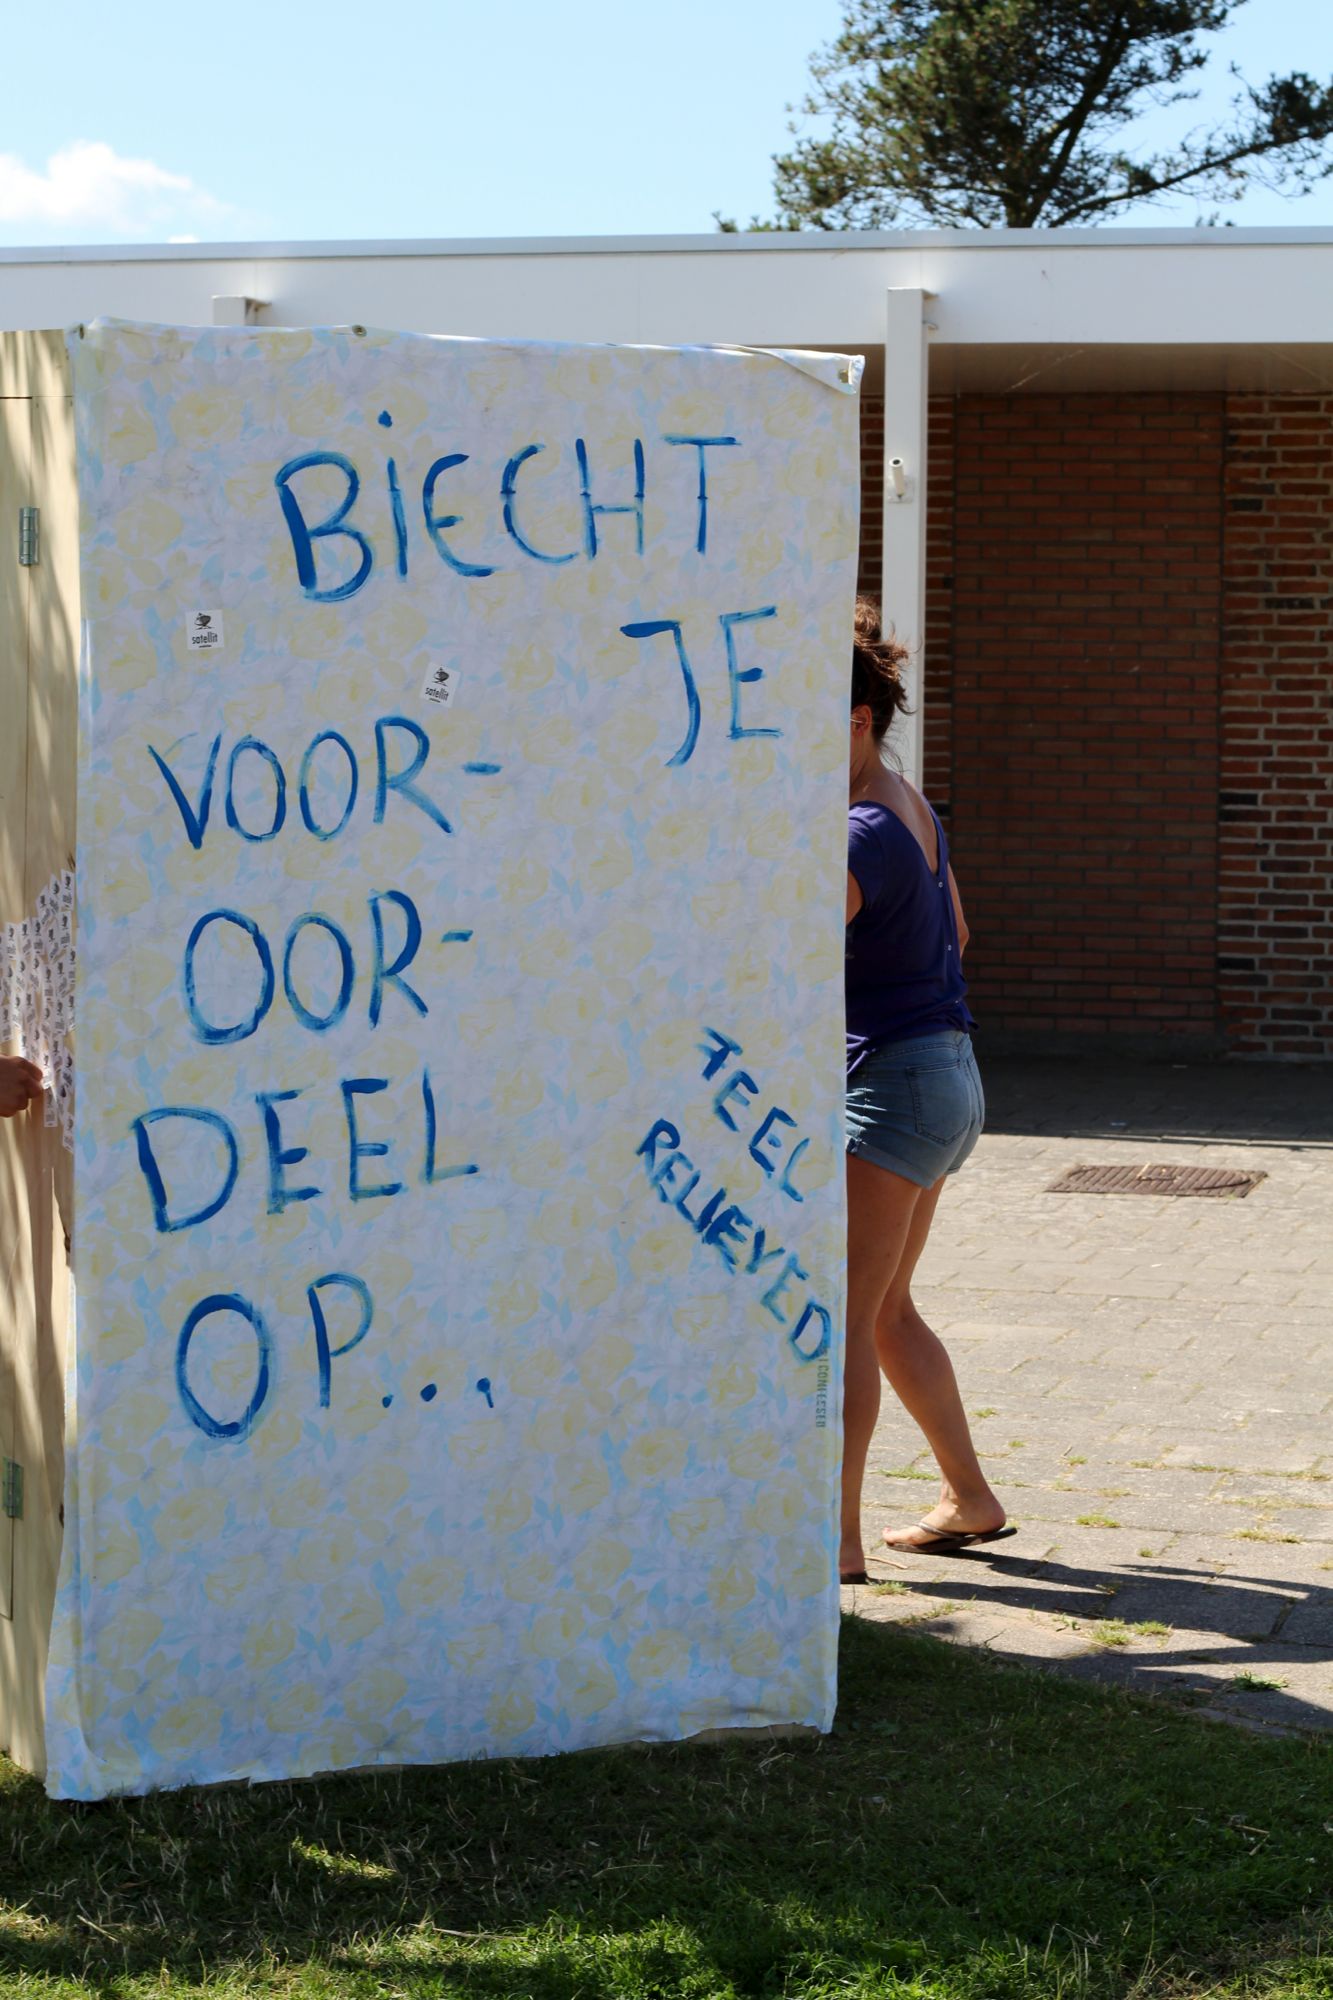 BIECHT
JE
satellit
satellit
VOOR-
OOR-
DEEL
OP...
FEEL
RELIEVED
I CONFESSED